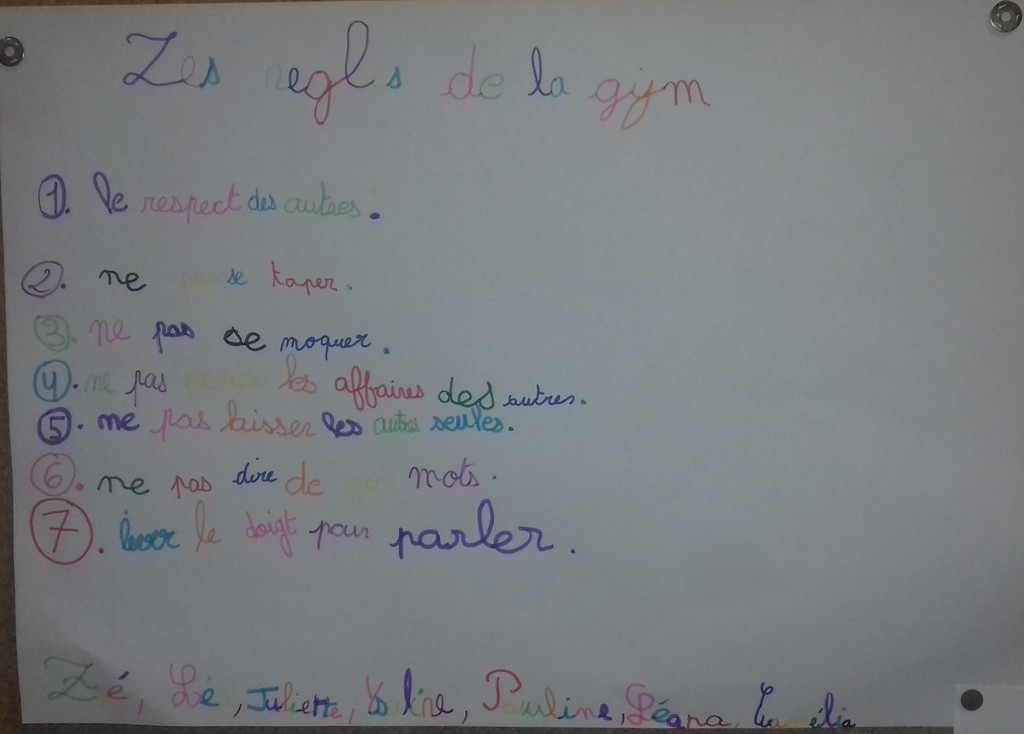 Les regls de la gym
1. le respect des autres.
2. ne pas se taper.
3. ne pas se moquer.
4. ne pas les affaires des autres.
5. ne pas laisser les autres seules.
6. ne pas dire de mots.
7. lever le doigt pour parler.
Zé, Lé, Juliette, Pauline, Léana,